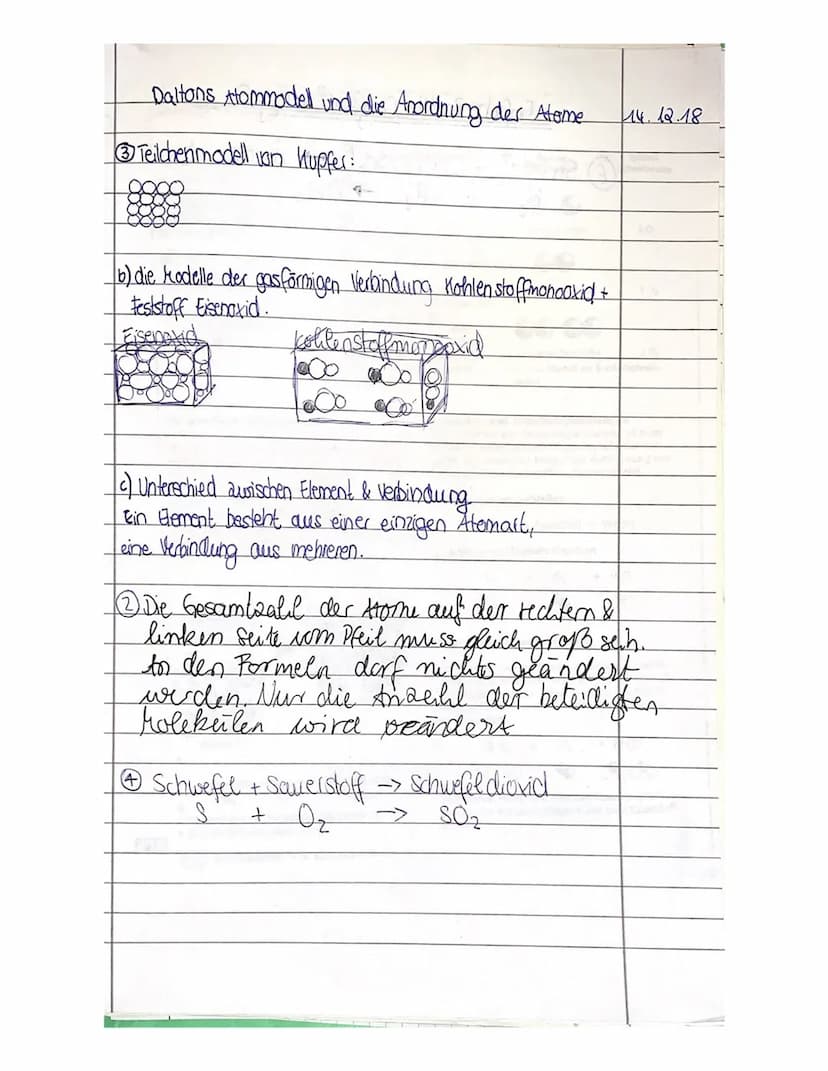 Daltons Atommodell und die Anordnung der Atome 14.12.18
③ Teilchenmodell von Kupfer:
b) die Modelle der gasförmigen Verbindung Kohlenstoffmonooxid +
Feststoff Eisenoxid.
Eisenoxid Kohlenstoffmonooxid
c) Unterschied zwischen Element & Verbindung
Ein Element besteht aus einer einzigen Atomart,
eine Verbindung aus mehreren.
② Die Gesamtzahl der Atome auf der rechtern &
linken Seite vom Pfeil muss gleich groß sein.
In den Formeln darf nichts geändert
werden. Nur die Anzahl der beteidigten
Molekülen wird geändert
④ Schwefel + Sauerstoff → Schwefeldioxid
S + O₂ → SO₂